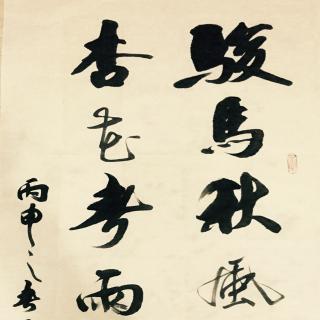 駿馬秋風
杏花春雨
丙申之春